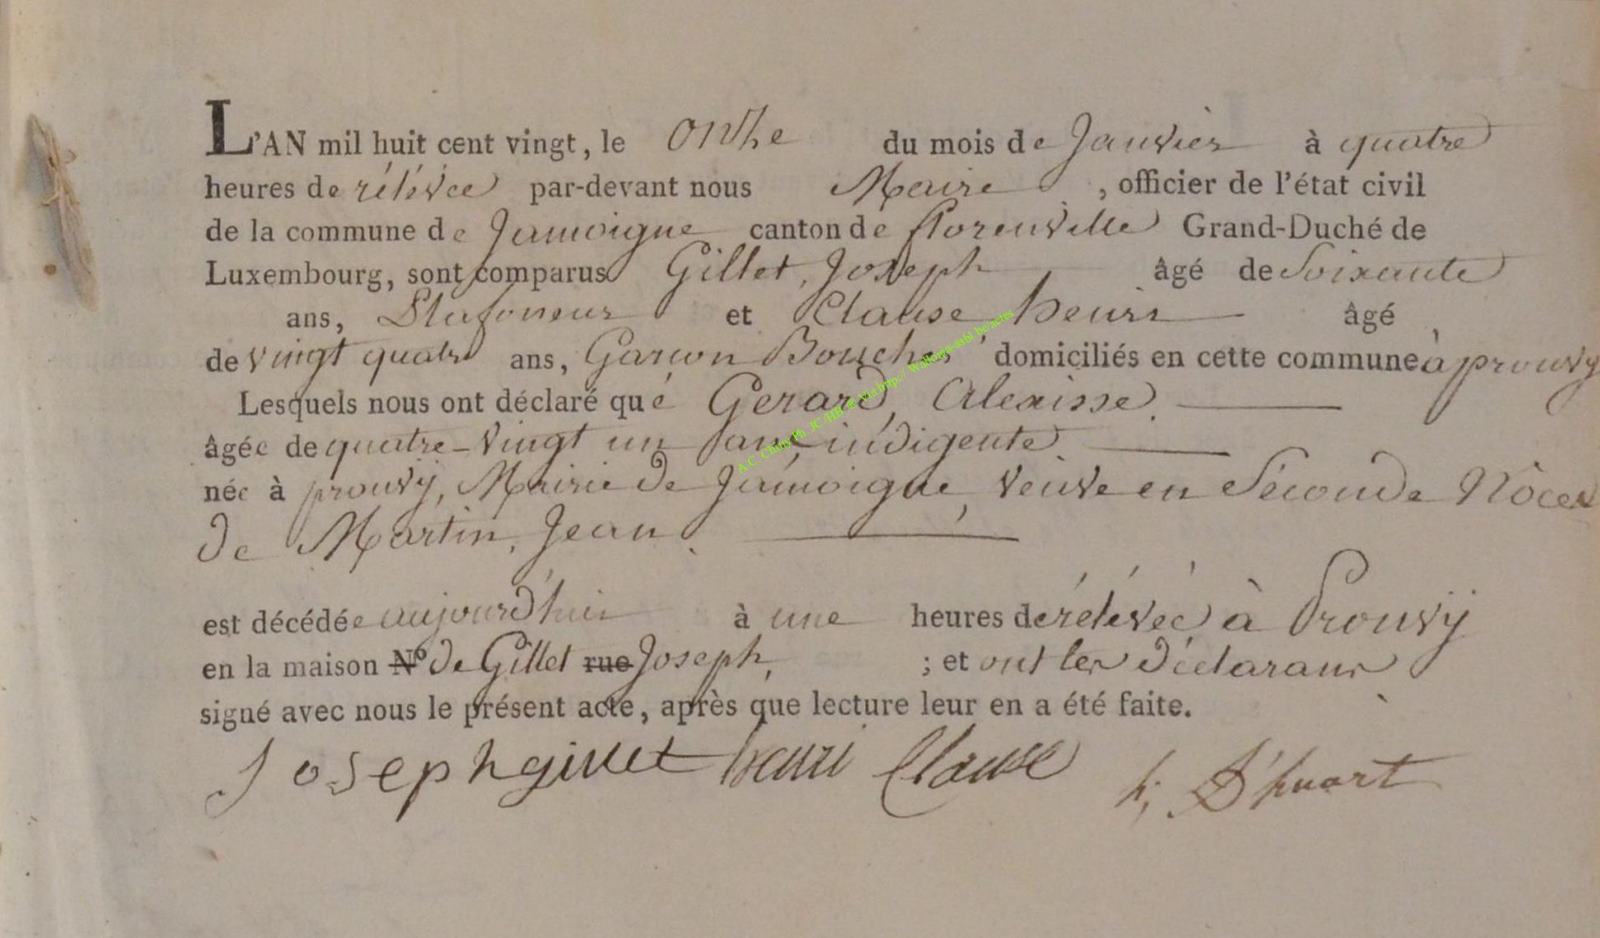 L'AN mil huit cent vingt, le onZhe du mois de Janvier à quatre
heures de rélévée par-devant nous Maire, officier de l'état civil
de la commune de Jamoigne canton de florenville Grand-Duché de
Luxembourg, sont comparus Gillet, Joseph âgé de Soixante
ans, Plafoneur et Clause henri âgé
de vingt quatre ans, Garcon Boucher, domiciliés en cette commune à prouvy
Lesquels nous ont déclaré que Gerard, Alexisse.
âgée de quatre-vingt un ans, indigente.
née à prouvy, Mairie de Jamoigne, veuve en Séconde Nôces
de Martin, Jean.
est décédée aujourd'hui à une heures de rélévée à Prouvy
en la maison N° de Gillet rue Joseph, ; et ont les déclarans
signé avec nous le présent acte, après que lecture leur en a été faite.
Joseph gillet henri Clause h; D'huart